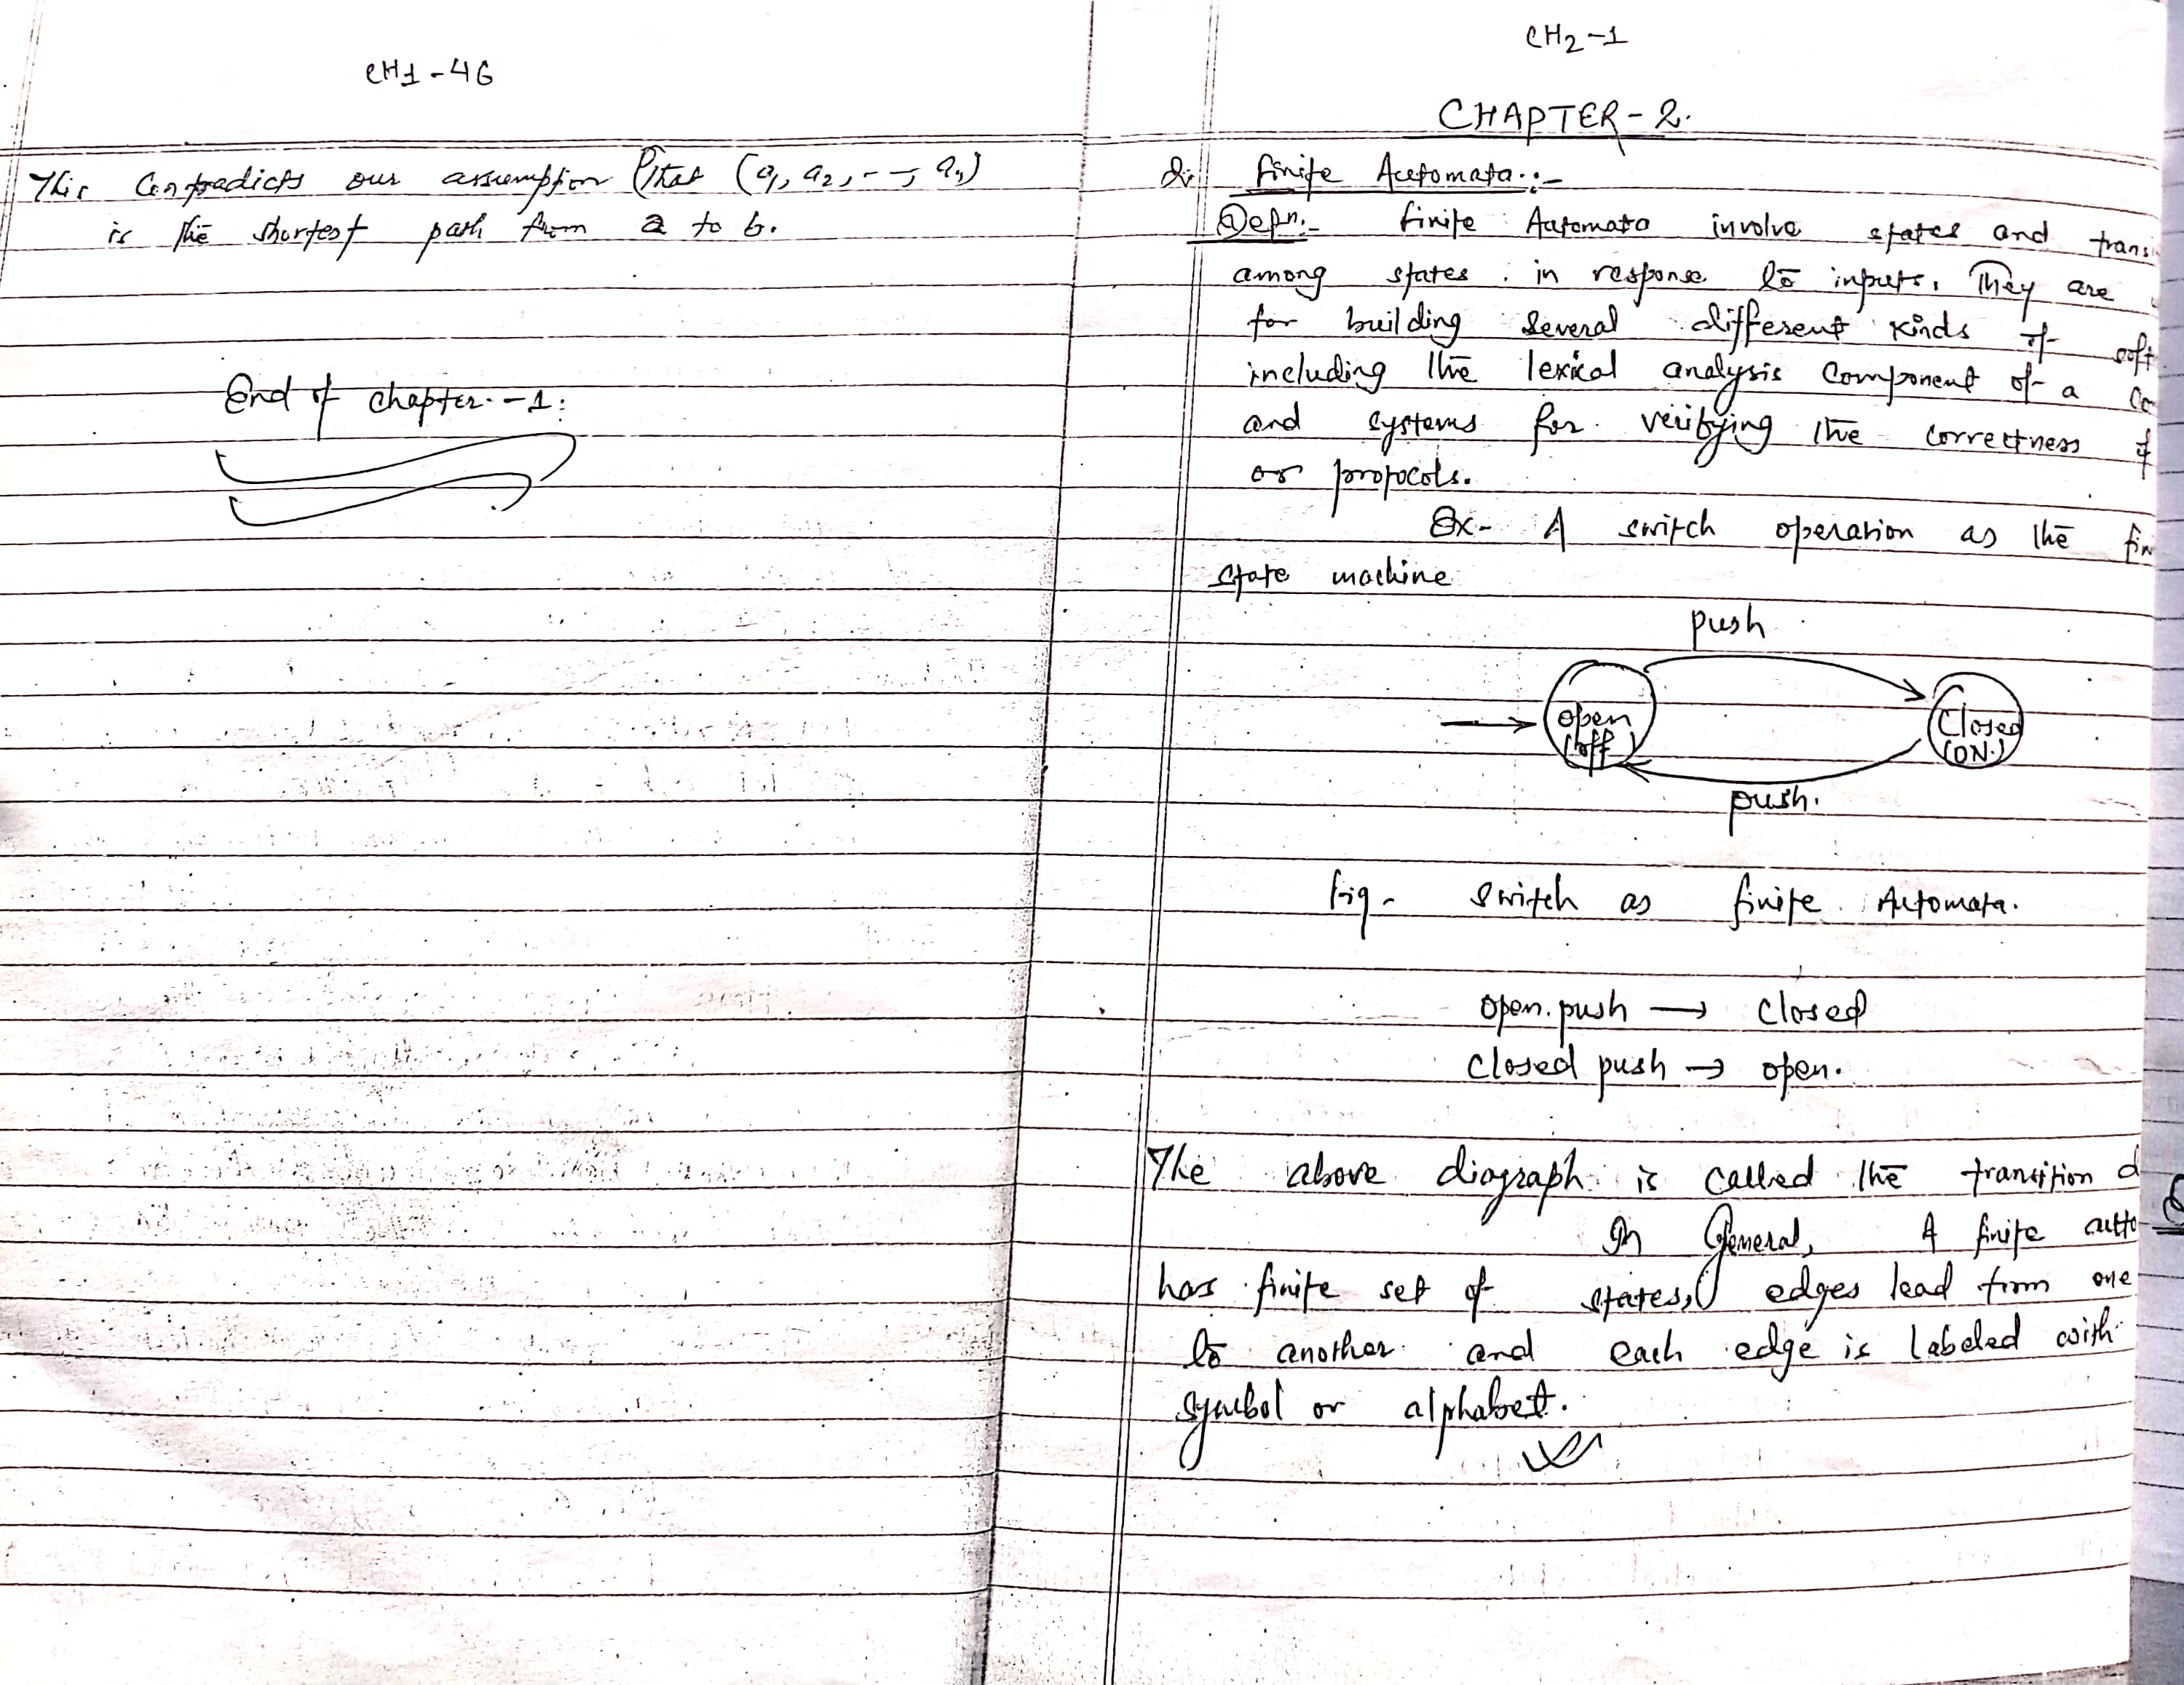 CH1-46
This Contradicts our assumption that (a1, a2, - - , an)
is the shortest path from a to b.
End of chapter-1:
CH2-1
CHAPTER-2.
2. finite Automata:-
Defn:- finite Automata involve states and trans
among states in response to inputs. They are
for building several different kinds of soft
including the lexical analysis component of a Co
and systems for verifying the correctness of
or protocols.
Ex- A switch operation as the fin
state machine
push
open
(off)
Closed
(ON)
push.
fig- switch as finite Automata.
open.push → closed
closed push → open.
The above diagraph is called the transition d
In General, A finite auto
has finite set of states, edges lead from one
to another and each edge is labeled with
symbol or alphabet.